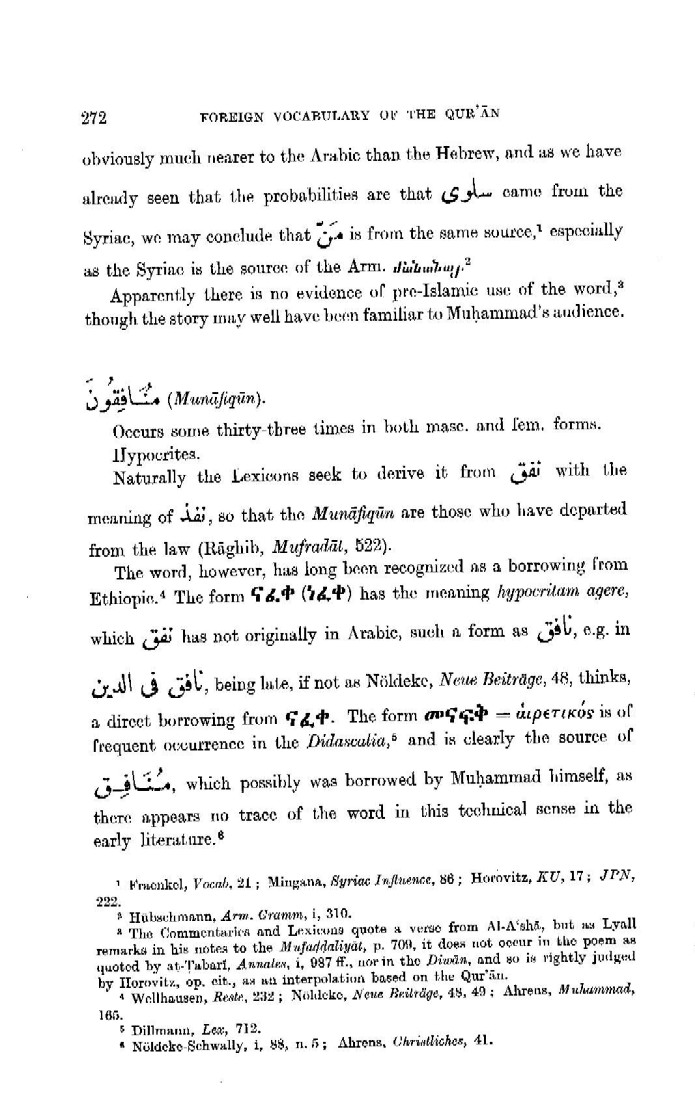 272 FOREIGN VOCABULARY OF THE QUR'ĀN
obviously much nearer to the Arabic than the Hebrew, and as we have
already seen that the probabilities are that سلوى came from the
Syriac, we may conclude that مَنّ is from the same source,¹ especially
as the Syriac is the source of the Arm. մանանայ.²
Apparently there is no evidence of pre-Islamic use of the word,³
though the story may well have been familiar to Muḥammad's audience.
مُنَافِقُونَ (Munāfiqūn).
Occurs some thirty-three times in both masc. and fem. forms.
Hypocrites.
Naturally the Lexicons seek to derive it from نفق with the
meaning of نفذ, so that the Munāfiqūn are those who have departed
from the law (Rāghib, Mufradāt, 522).
The word, however, has long been recognized as a borrowing from
Ethiopic.⁴ The form ናፈቀ (ነፈቀ) has the meaning hypocritam agere,
which نفق has not originally in Arabic, such a form as نافق, e.g. in
نافق فى الدين, being late, if not as Nöldeke, Neue Beiträge, 48, thinks,
a direct borrowing from ናፈቀ. The form መናፍቅ = αἱρετικός is of
frequent occurrence in the Didascalia,⁵ and is clearly the source of
مُنَافِق, which possibly was borrowed by Muḥammad himself, as
there appears no trace of the word in this technical sense in the
early literature.⁶
¹ Fraenkel, Vocab, 21; Mingana, Syriac Influence, 86; Horovitz, KU, 17; JPN,
222.
² Hübschmann, Arm. Gramm, i, 310.
³ The Commentaries and Lexicons quote a verse from Al-A'shā, but as Lyall
remarks in his notes to the Mufaḍḍaliyāt, p. 709, it does not occur in the poem as
quoted by aṭ-Ṭabarī, Annales, i, 987 ff., nor in the Diwān, and so is rightly judged
by Horovitz, op. cit., as an interpolation based on the Qur'ān.
⁴ Wellhausen, Reste, 232; Nöldeke, Neue Beiträge, 48, 49; Ahrens, Muhammad,
165.
⁵ Dillmann, Lex, 712.
⁶ Nöldeke-Schwally, i, 88, n. 5; Ahrens, Christliches, 41.